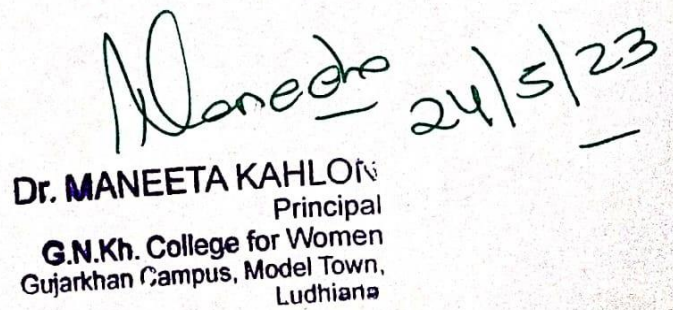 Maneeta 24/5/23
Dr. MANEETA KAHLON
Principal
G.N.Kh. College for Women
Gujarkhan Campus, Model Town,
Ludhiana